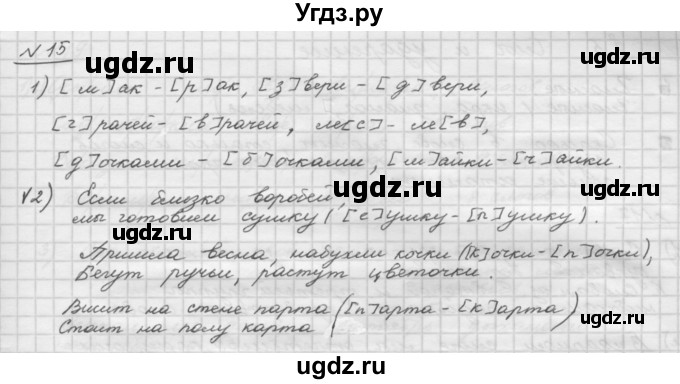 Угдз.ру
N 15
ugdz.ru ugdz.ru ugdz.ru
1) [м]ак - [р]ак, [з]вери - [д]вери,
[г]рачей - [в]рачей, ле[с] - ле[в],
ugdz.ru ugdz.ru
[д]очками - [б]очками, [м]айки - [ч]айки.
√2) Если близко воробей,
мы готовием сушку ([с]ушку - [п]ушку).
ugdz.ru ugdz.ru ugdz.ru
Пришла весна, набухли кочки ([к]очки - [п]очки),
Бегут ручьи, растут цветочки.
ugdz.ru ugdz.ru
Висит на стене парта ([п]арта - [к]арта)
Стоит на полу карта
ugdz.ru ugdz.ru ugdz.ru